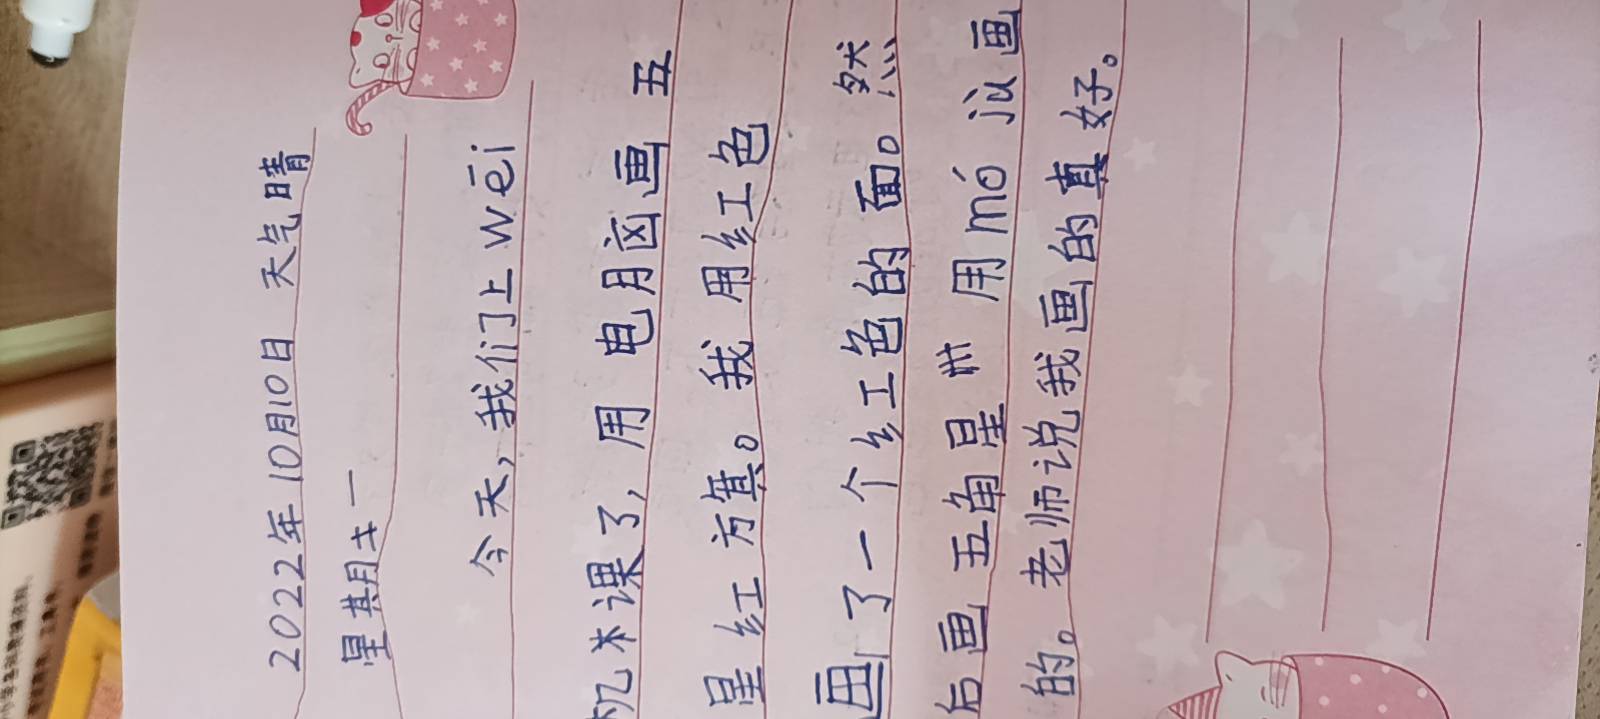 2022年10月10日 天气晴
星期一
今天,我们上wēi
机课了,用电脑画五
星红旗。我用红色
画了一个红色的面。然
后画五角星用mó jù画
的。老师说我画的真好。